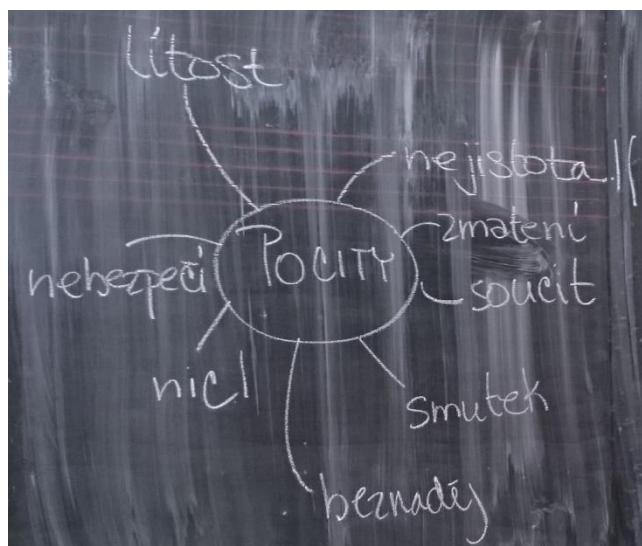 lítost
nejistota
zmatení
POCITY
soucit
nebezpečí
nic
smutek
beznaděj